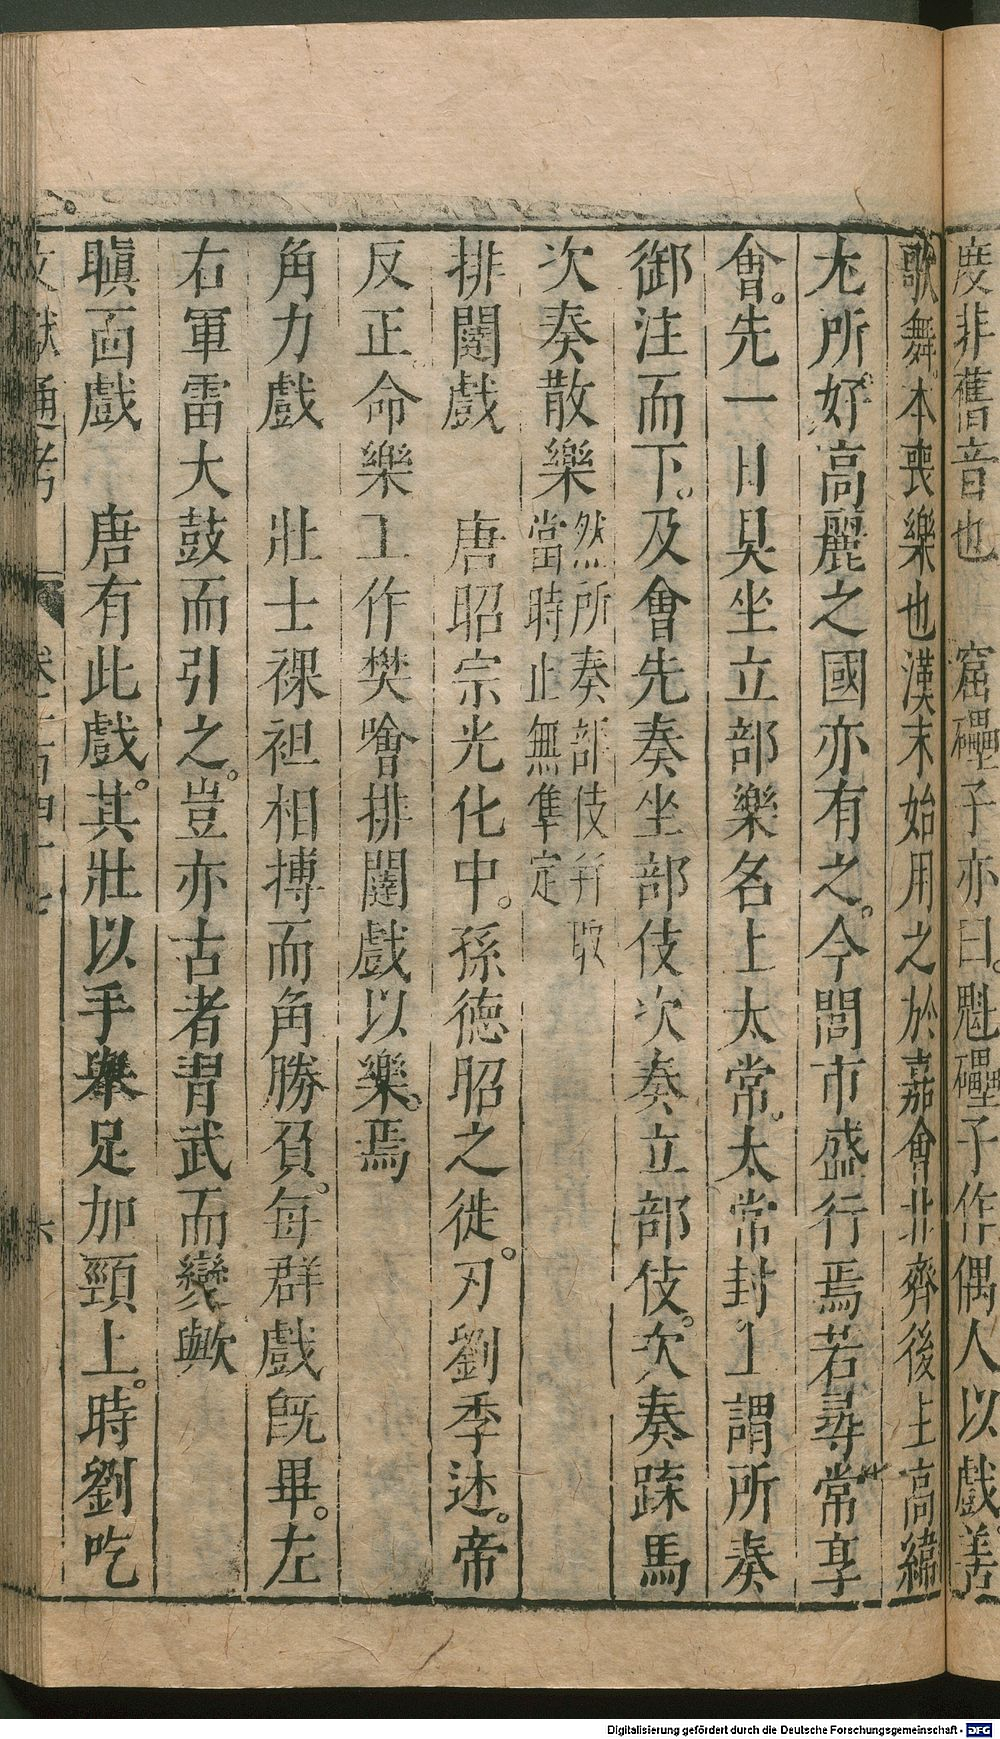 度非舊音也　窟礧子亦曰魁礧子作偶人以戲善
歌舞本喪樂也漢末始用之於嘉會北齊後主高緯
尤所好高麗之國亦有之今閭市盛行焉若尋常享
會先一日具坐立部樂名上太常太常封上謂所奏
御注而下及會先奏坐部伎次奏立部伎次奏蹀馬
次奏散樂然所奏部伎并取當時止無隼定
排闥戲　唐昭宗光化中孫德昭之徒刃劉季述帝
反正命樂工作樊噲排闥戲以樂焉
角力戲　壯士裸袒相搏而角勝負每群戲既畢左
右軍雷大鼓而引之豈亦古者習武而變歟
瞋面戲　唐有此戲其壯以手舉足加頸上時劉吃
文獻通考　卷一百四十七　六
Digitalisierung gefördert durch die Deutsche Forschungsgemeinschaft - DFG